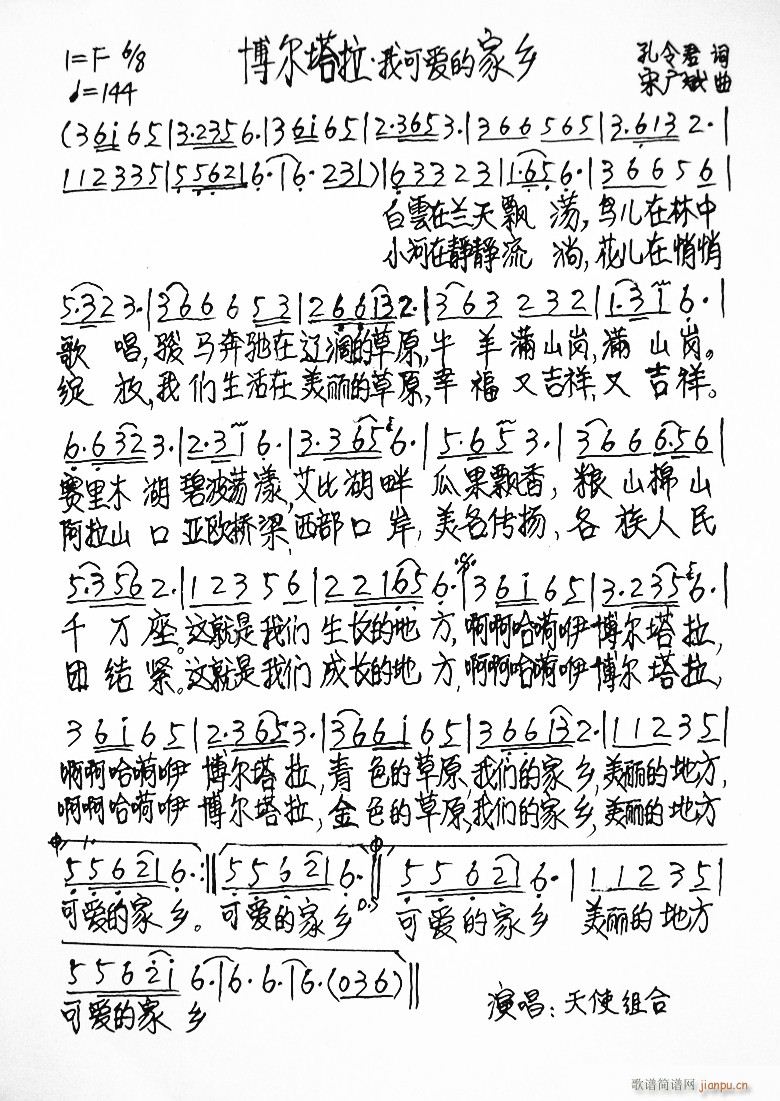 1=F 6/8 博尔塔拉·我可爱的家乡 孔令君 词
♩=144 宋广斌 曲
(36i65|3·2356·|36i65|2·3653·|366565|3·6132·|
112335|55621|6·|6·231)|63323|1·656·|366656|
白雲在兰天飘 荡,鸟儿在林中
小河在静静流 淌,花儿在悄悄
5·323·|366653|266132·|363232|1·3i6·|
歌 唱,骏马奔驰在辽阔的草原,牛 羊 满山岗,满 山 岗。
绽 放,我们生活在美丽的草原,幸 福 又吉祥,又 吉 祥。
6·6323·|2·3i6·|3·3656·|5·653·|366656|
赛里木 湖 碧波荡漾,艾比湖畔 瓜果飘香, 粮 山棉 山
阿拉山 口 亚欧桥梁,西部口 岸, 美名传扬, 各 族人 民
5·3562·|112356|221656·|36i65|3·2356·|
千 万 座。这就是我们 生长的地 方,啊啊哈嗬咿博尔塔 拉,
团 结 紧。这就是我们 成长的地 方,啊啊哈嗬咿博尔 塔拉,
36i65|2·3653·|366i65|366132·|11235|
啊啊哈嗬咿 博尔塔 拉, 青 色的草原,我们的家乡,美丽的地方,
啊啊哈嗬咿 博尔塔 拉, 金 色的草原,我们的家乡,美丽的地方
556216·:||556216·||556216·|11235|
可爱的家 乡。 可爱的家 乡 D.S 可爱的家 乡 美丽的 地方
5562i|6·|6·6·|6·(036)||
可爱的家 乡 演唱:天使组合
歌谱简谱网
jianpu.cn